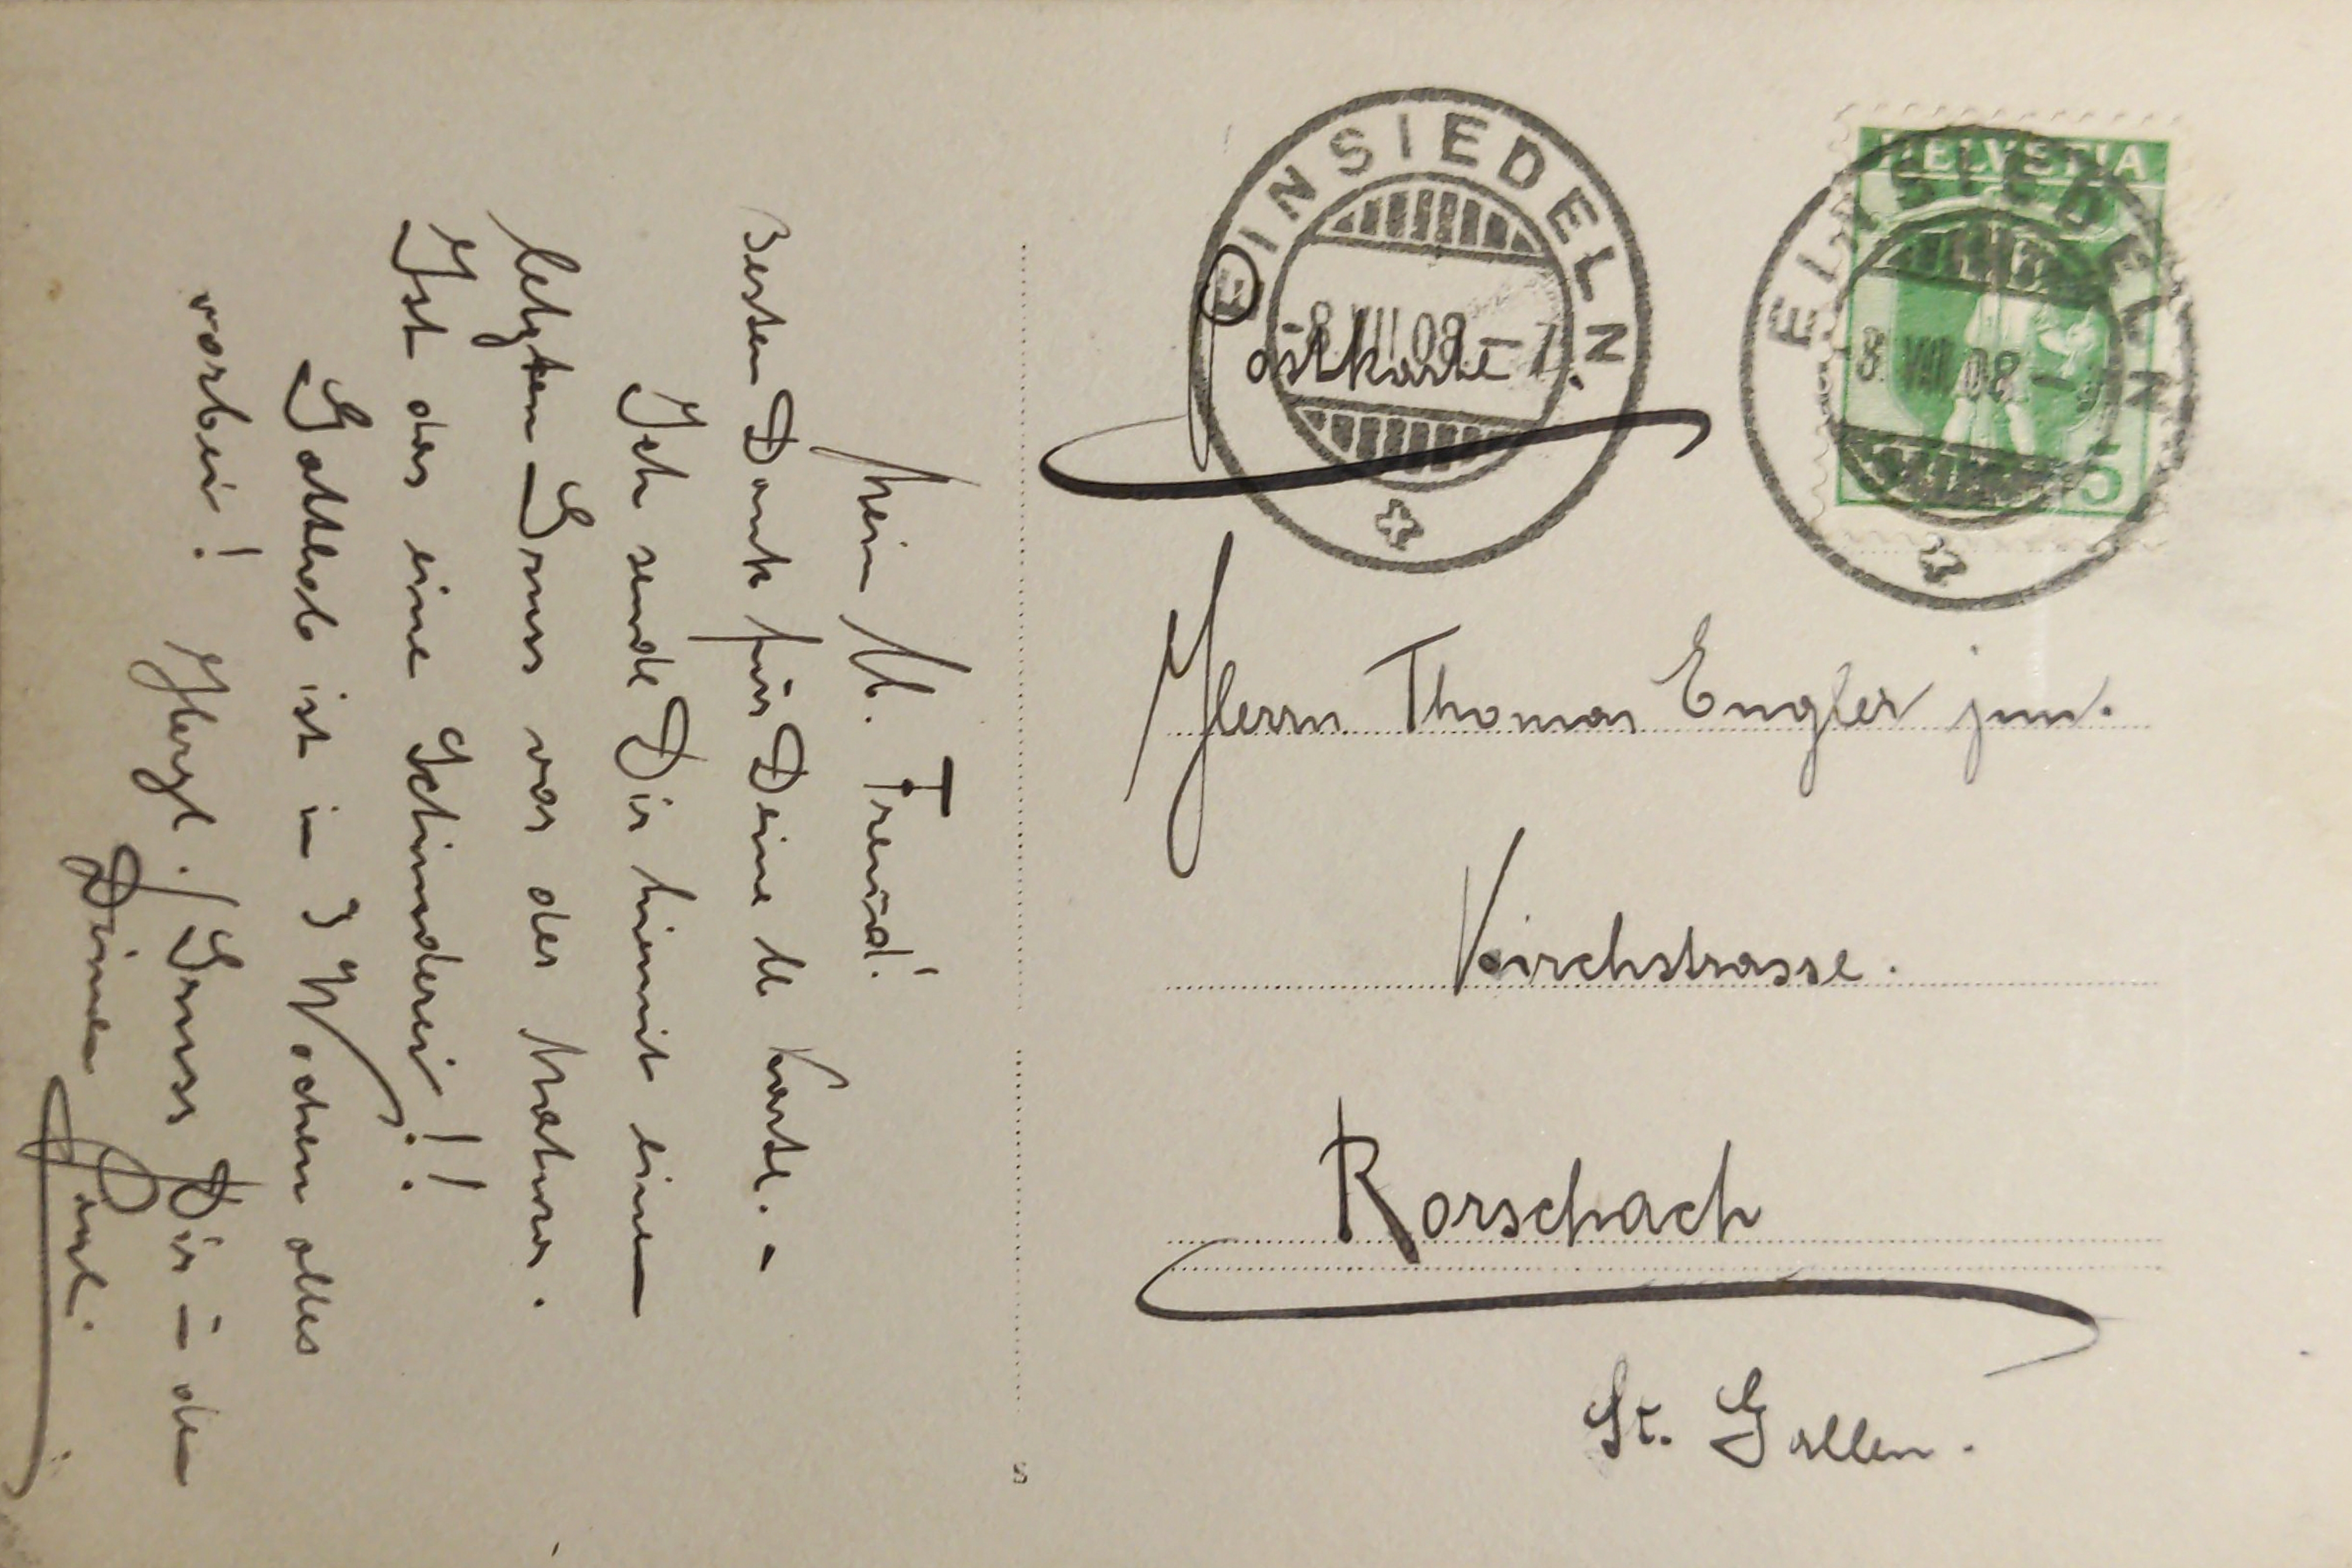 Mein lb. Freund!
Besten Dank für Deine lb Karte. –
Ich sende Dir hiemit einen
letzten Gruss vor der Matura.
Ist das eine Schinderei!!
Gottlob ist in 3 Wochen alles
vorbei! Herzl. Gruss Dir
Deinen
EINSIEDELN
-8.VIII.08.-
Postkarte.
HELVETIA
5
EINSIEDELN
8.VIII.08.-
Herrn Thomas Engler jun.
Kirchstrasse.
Rorschach
St. Gallen.
S